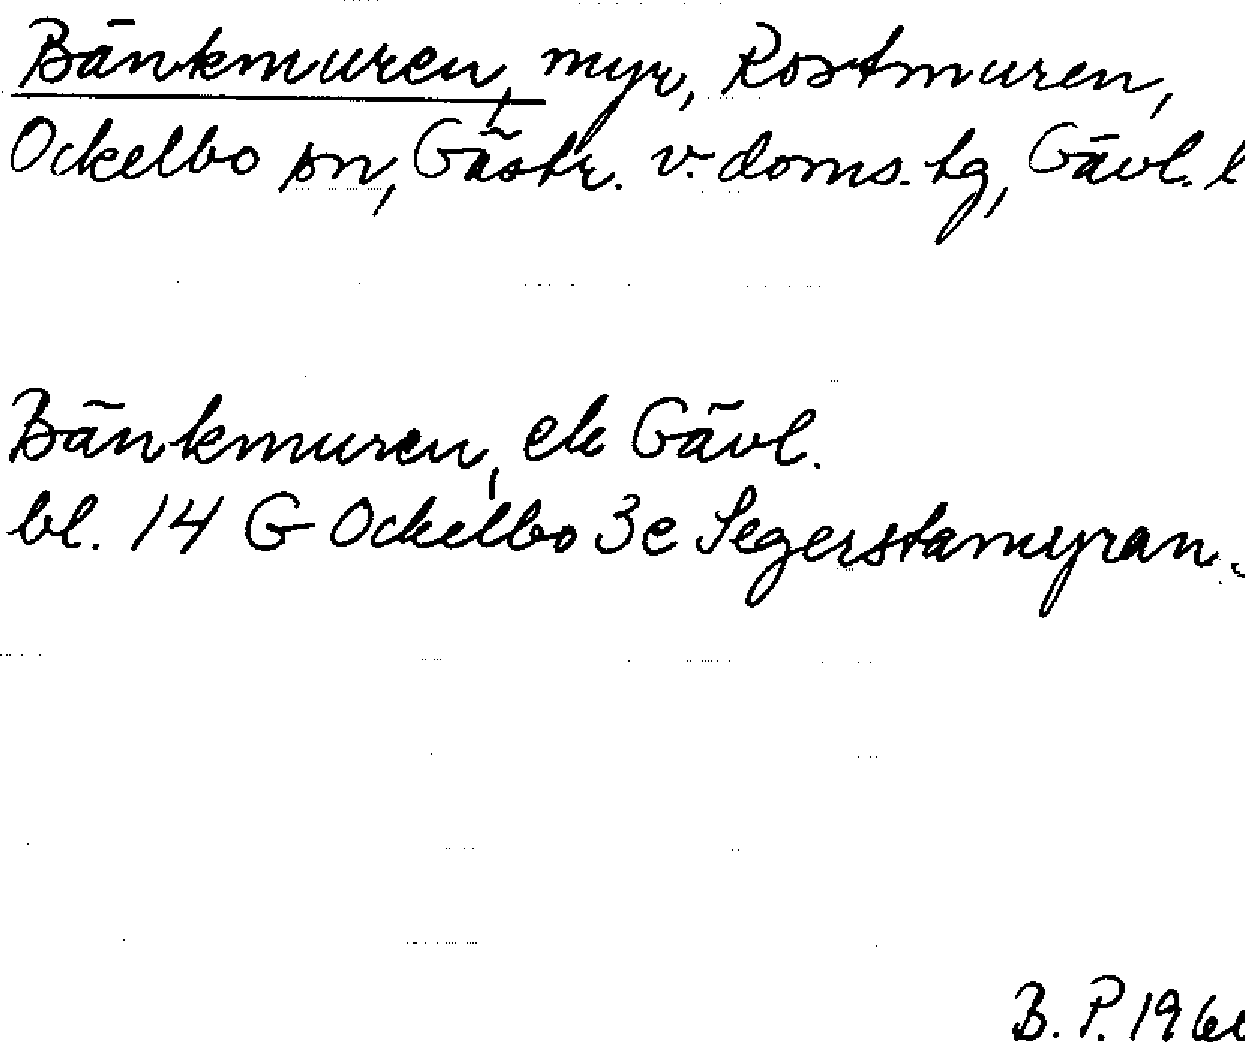 Bänkmuren, myr, Rostmuren,
Ockelbo sn, Gästr. v. doms. tg, Gävl. l
Bänkmuren, ek Gävl.
bl. 14 G Ockelbo 3e Segerstamyran.
B. P. 196